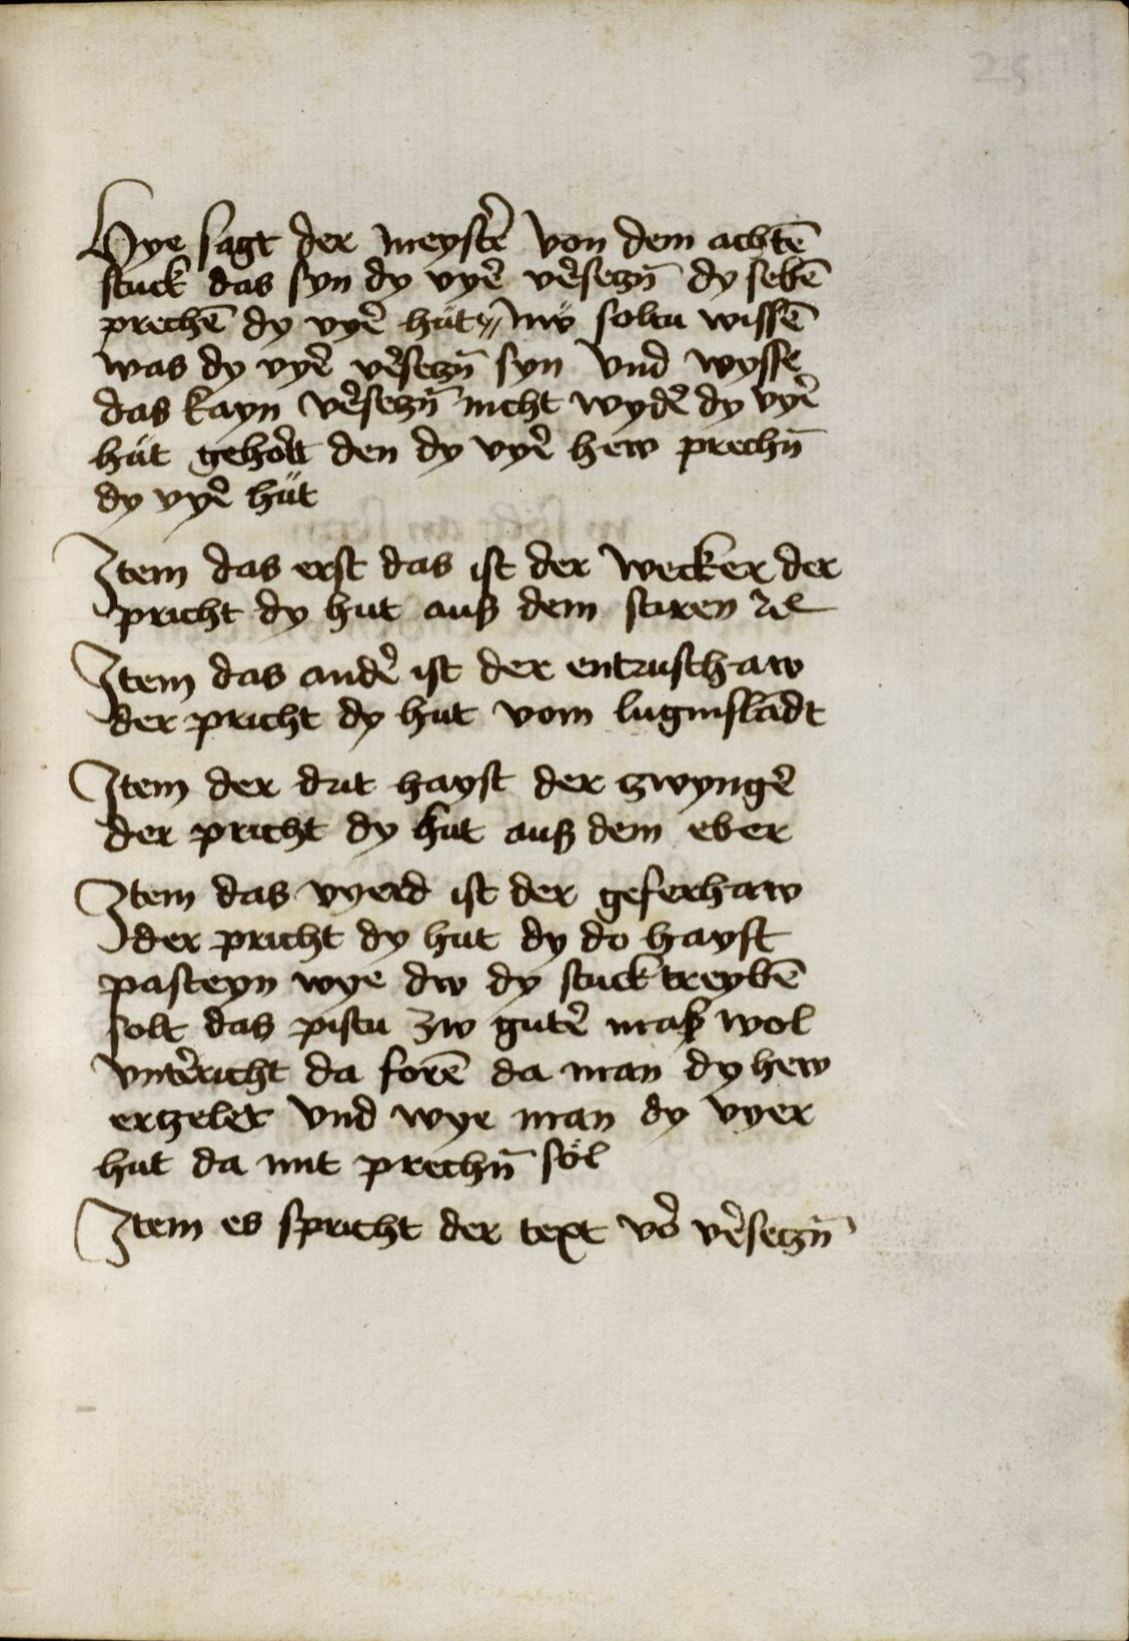 25
Hye sagt der meystẽ von dem achtē
stuck das syn dy vyẽ vẽseczn̄ dy sebē
prechē dy vyẽ hüt〃 nẅ soltu wissē
was dy vyẽ vẽseczn̄ syn vnd wysse
das kayn vẽseczn̄ nicht wydẽ dy vyẽ
hüt gehort den dy vyẽ hew prechn̄
dy vyẽ hüt
Item das erst das ist der wecker der
pricht dy hut auß dem stiren ⁊c
Item das andẽ ist der entrusthaw
der pricht dy hut vom luginslādt
Item der drit hayst der zwyngẽ
der pricht dy hut auß dem eber
Item das vyerd ist der geferhaw
der pricht dy hut dy do hayst
pasteyn wye dw dy stuck treybē
solt das pistu zw gutẽ maß wol
vntẽricht da forē da man dy hew
erzelet vnd wye man dy vyer
hut da mit prechn̄ söl
Item es spricht der text võ vẽseczn̄